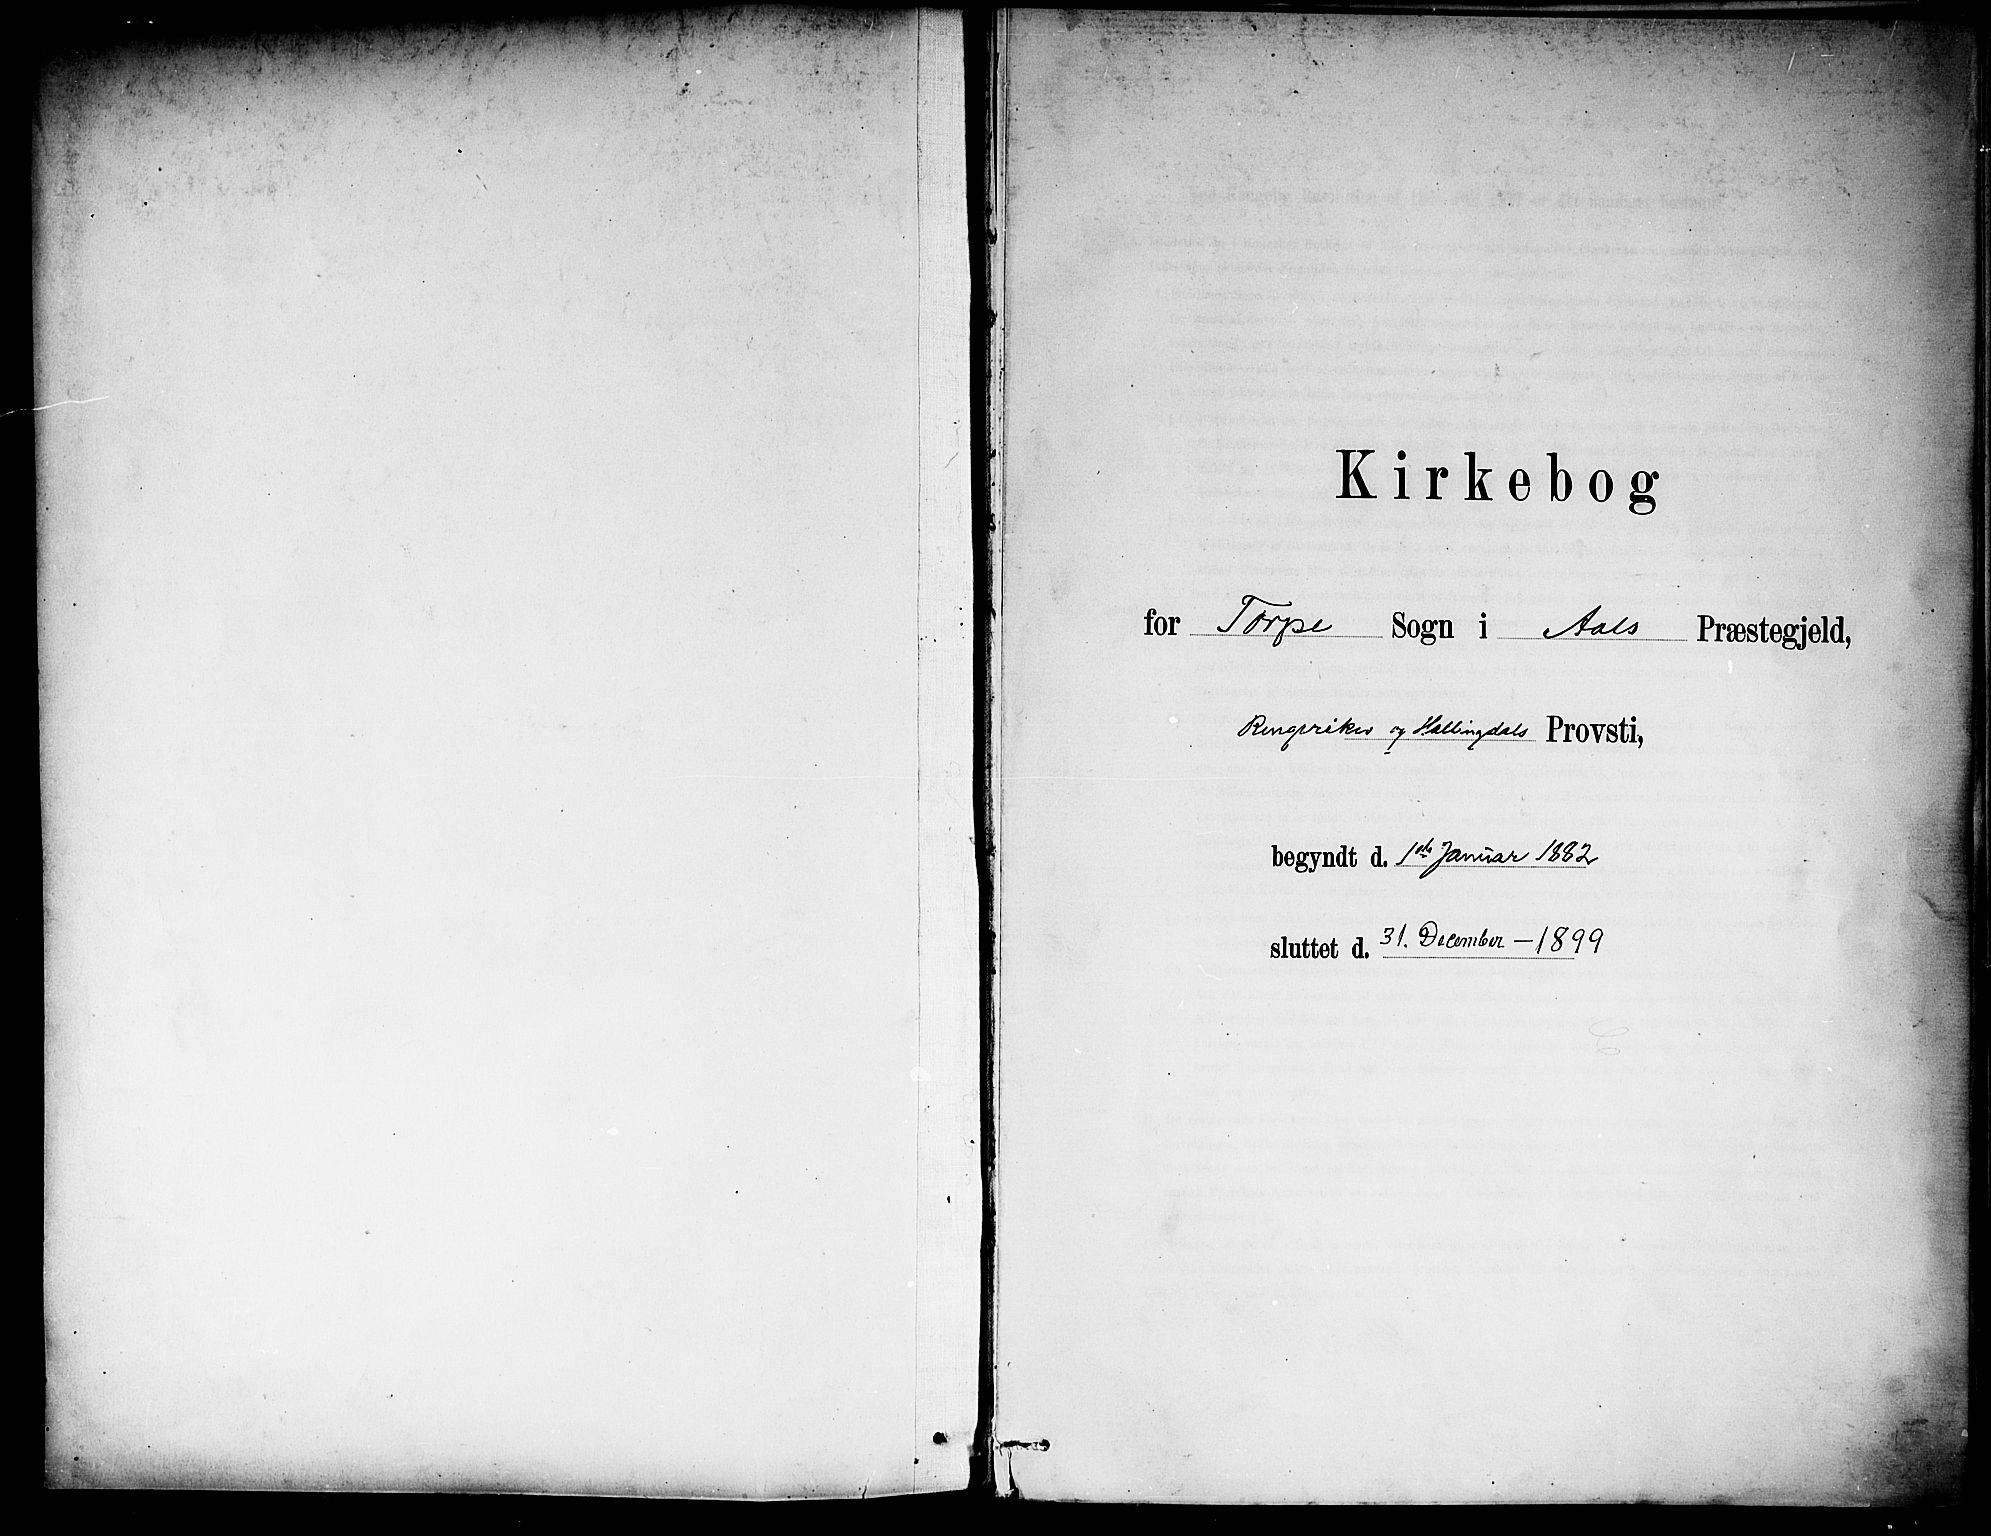 Kirkebog
for Torpe Sogn i Aals Præstegjeld,
Ringerikes og Hallingdals Provsti,
begyndt d. 1ste Januar 1882
sluttet d. 31. December - 1899